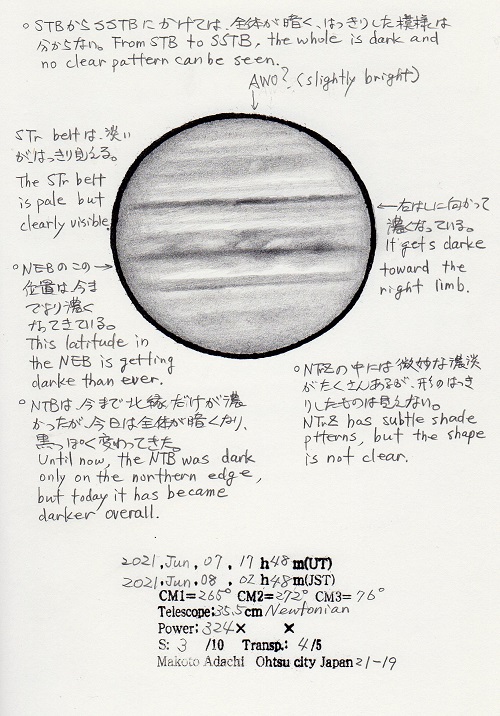 ○STBからSSTBにかけては、全体が暗く、はっきりした模様は
分からない。From STB to SSTB, the whole is dark and
no clear pattern can be seen.
AWO? (slightly bright)
STr beltは、淡い
が、はっきり見える。
The STr belt
is pale but
clearly visible.
←右はしに向かって
濃くなっている。
It gets darke
toward the
right limb.
○NEBのこの→
位置は、今ま
でより濃く
なってきている。
This latitude in
the NEB is getting
darke than ever.
○NTZの中には微妙な濃淡
がたくさんあるが、形のはっき
りしたものは見えない。
NTrZ has subtle shade
ptterns, but the shape
is not clear.
○NTBは、今まで北縁だけが濃
かったが、今日は全体が暗くなり、
黒っぽく変わってきた。
Until now, the NTB was dark
only on the northern edge,
but today it has became
darker overall.
2021, Jun, 07, 17 h48 m(UT)
2021, Jun, 08, 02 h48 m(JST)
CM1=265° CM2=272° CM3=76°
Telescope:35.5cm Newtonian
Power:324× ×
S: 3 /10 Transp.: 4/5
Makoto Adachi Ohtsu city Japan 21-19